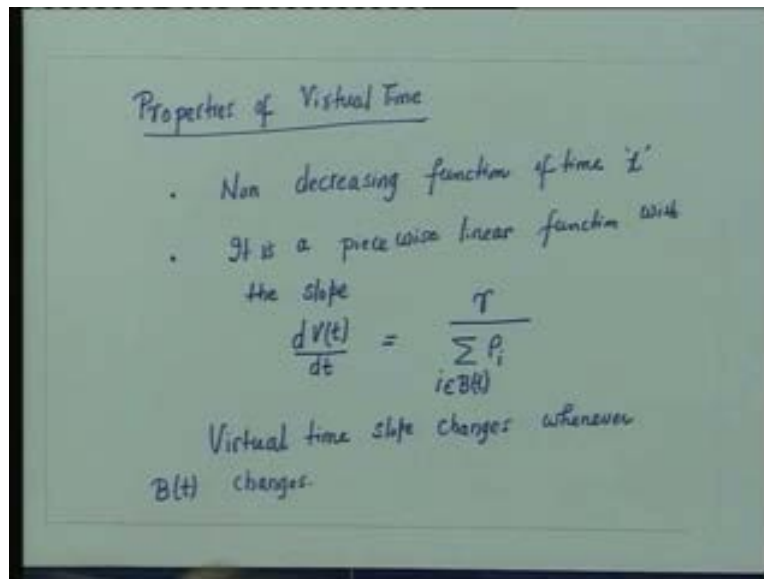 Properties of Virtual Time
• Non decreasing function of time 't'
• It is a piece wise linear function with
the slope
dV(t)/dt = r / ∑ P_i
i∈B(t)
Virtual time slope changes whenever
B(t) changes.